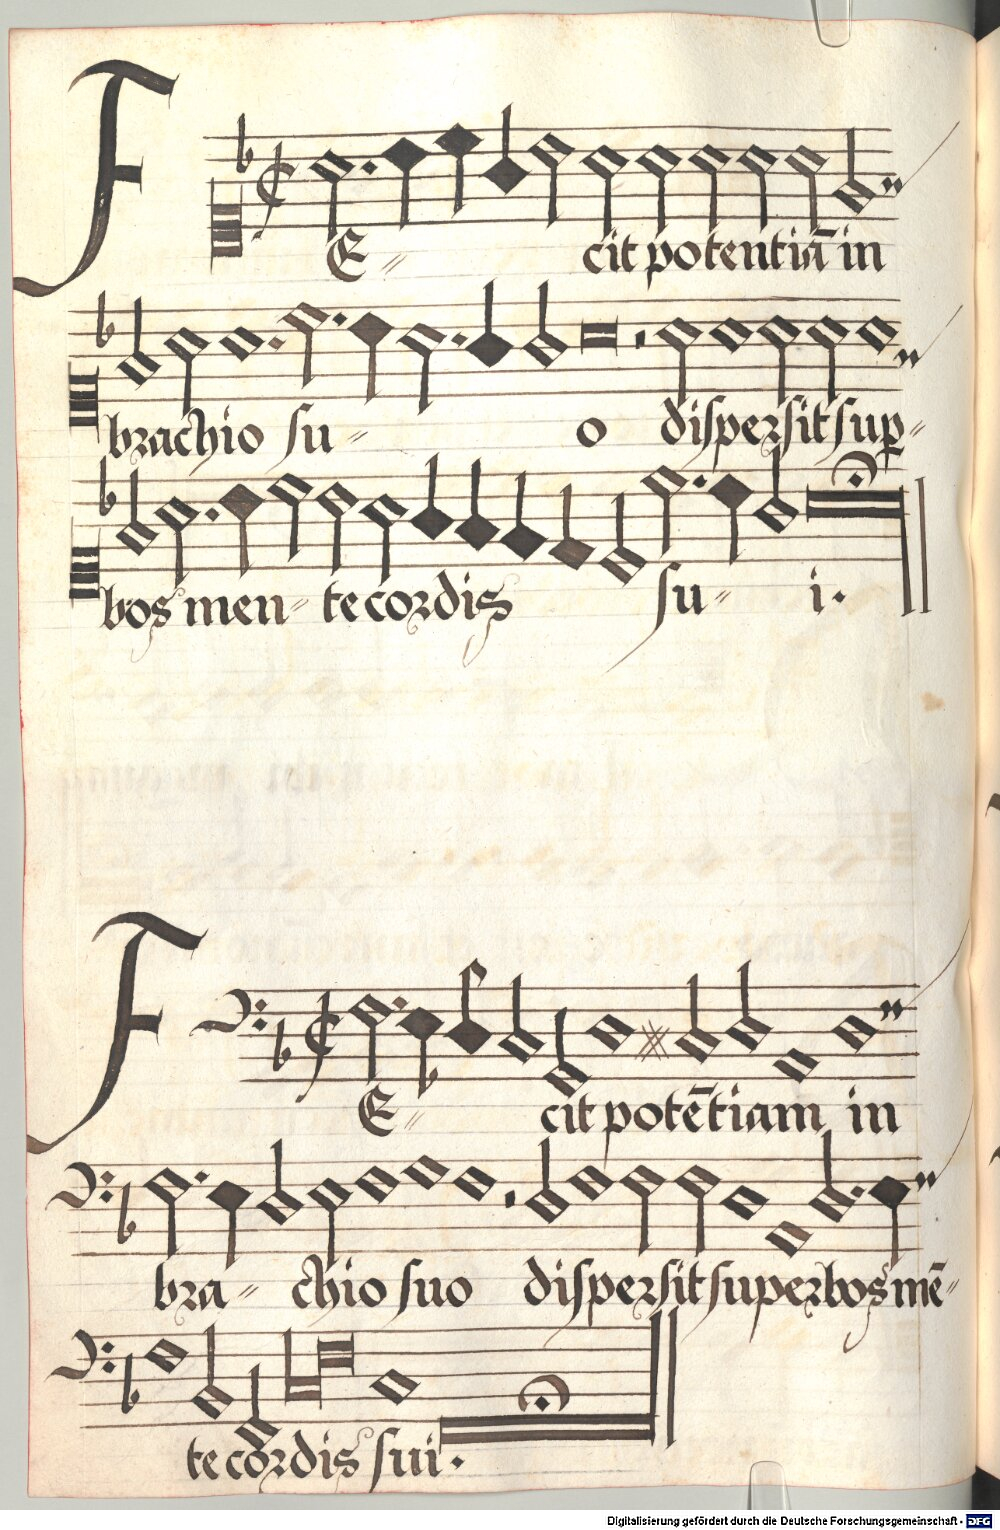 F E〃 cit potentiā in
brachio su〃 o dispersit sup〃
bos men〃 te cordis su〃 i.
F E〃 cit potētiam in
bra〃 chio suo dispersit superbos mē〃
te cordis sui.
Digitalisierung gefördert durch die Deutsche Forschungsgemeinschaft - DFG